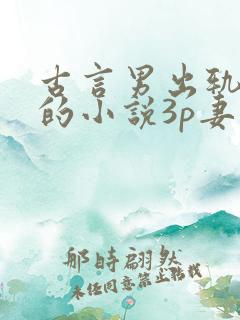 古言男出轨
的小说3p妻
那时翩然
未经同意禁止转载